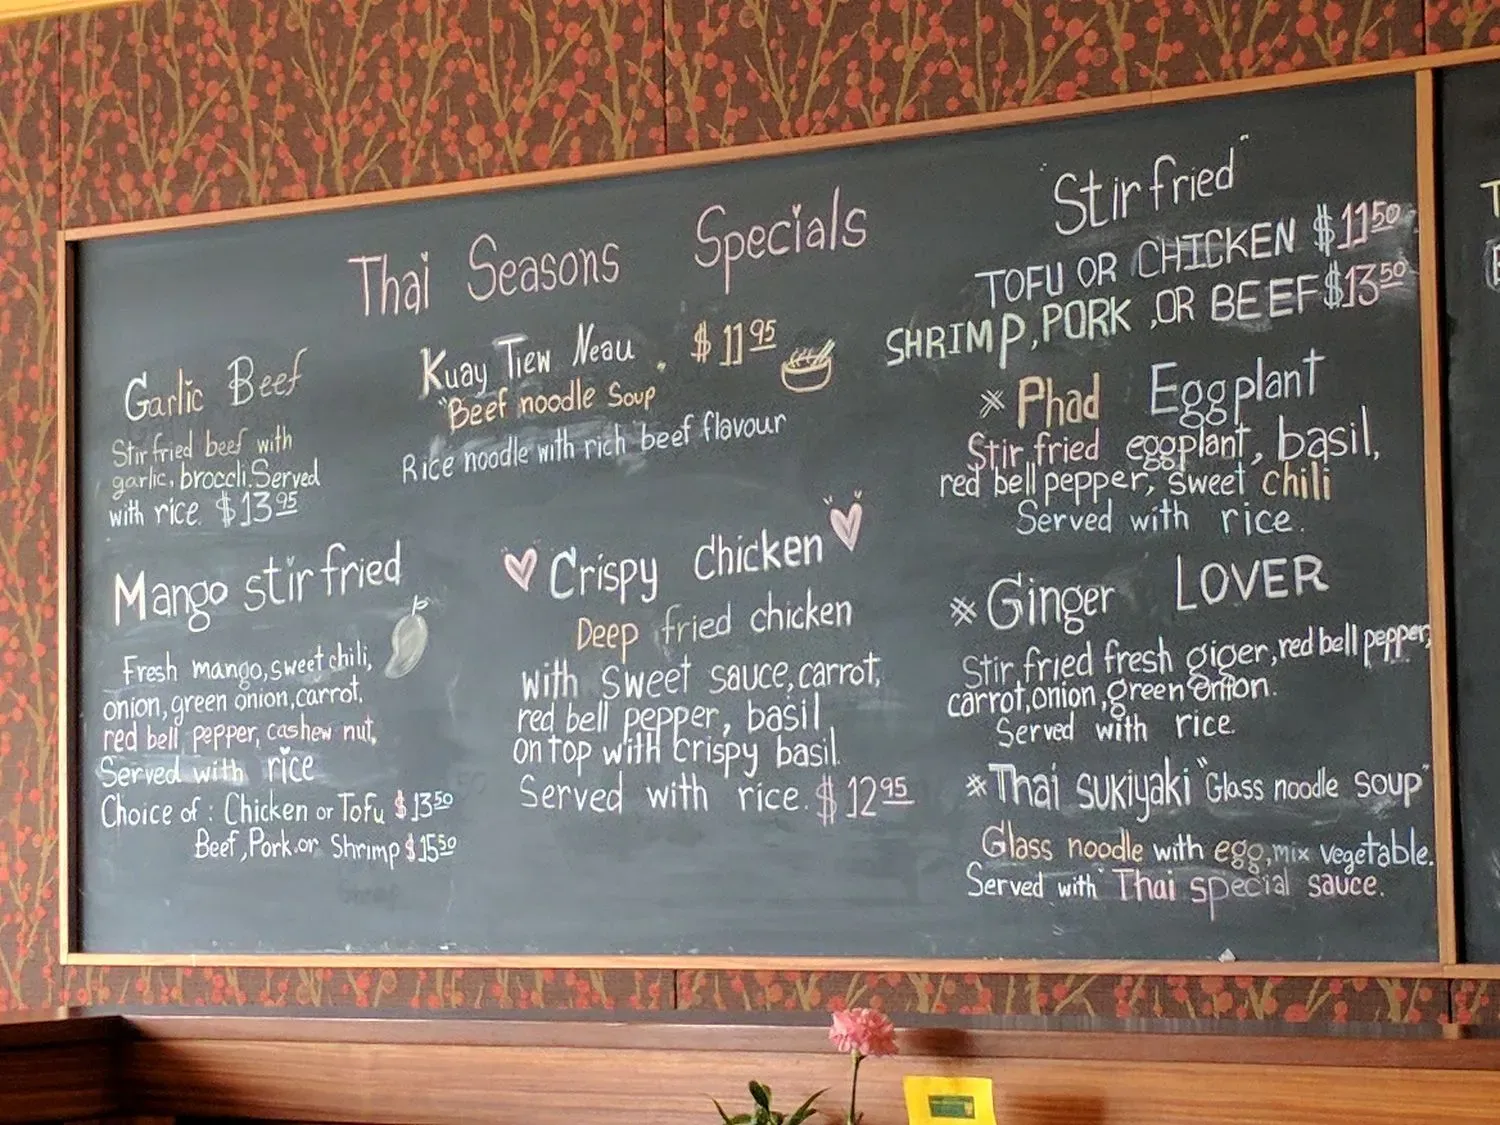 Thai Seasons Specials
Garlic Beef
Stir fried beef with
garlic, broccli. Served
with rice. $13 95
Mango stir fried
Fresh mango, sweet chili,
onion, green onion, carrot,
red bell pepper, cashew nut,
Served with rice
Choice of : Chicken or Tofu $13 50
Beef, Pork or Shrimp $15 50
Kuay Tiew Neau . $11 95
"Beef noodle Soup"
Rice noodle with rich beef flavour
Crispy chicken
Deep fried chicken
with sweet sauce, carrot,
red bell pepper, basil
on top with crispy basil.
Served with rice. $12 95
"Stir fried"
TOFU OR CHICKEN $11 50
SHRIMP, PORK, OR BEEF $13 50
* Phad Eggplant
Stir fried eggplant, basil,
red bell pepper, sweet chili
Served with rice.
* Ginger LOVER
Stir fried fresh giger, red bell pepper,
carrot, onion, green onion.
Served with rice.
* Thai sukiyaki "Glass noodle soup"
Glass noodle with egg, mix vegetable.
Served with Thai special sauce.